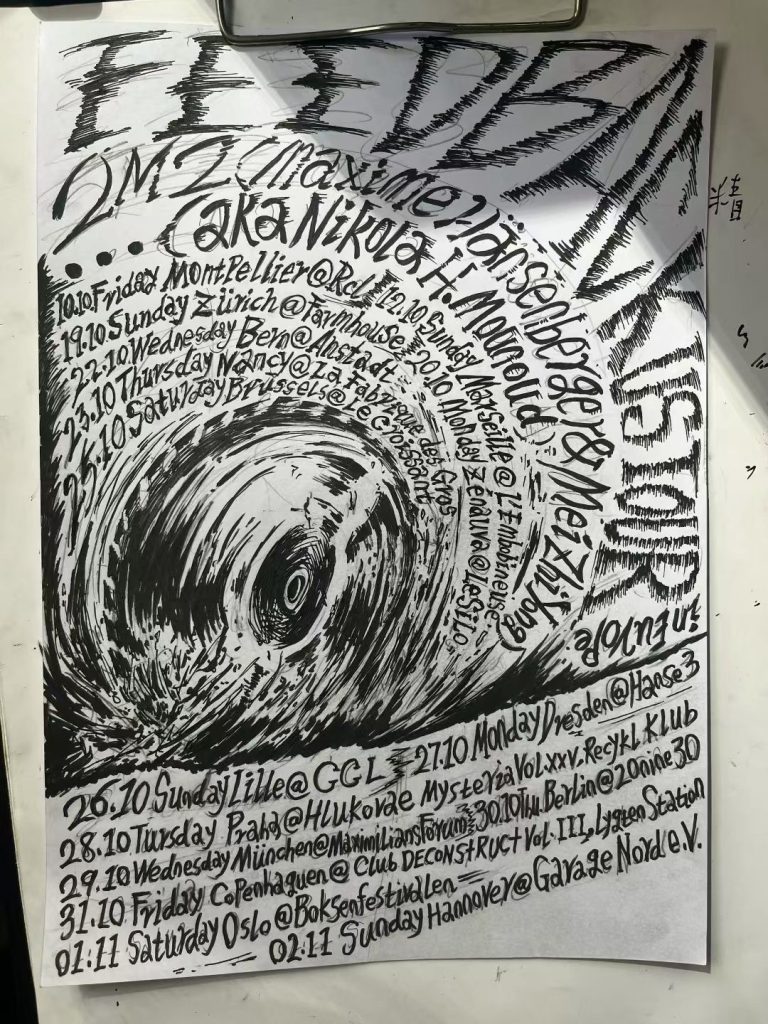 FEEDBACKUSTOUR
in Europe
2M2 (Maxime Hänsenberger & Mei Zhiyong)
... (aka Nikola H. Mounoud)
10.10 Friday Montpellier@Rcl 12.10 Sunday Marseille @ L'Embobineuse
19.10 Sunday Zürich @Farmhouse 20.10 Monday Zenauva @LeSilo
22.10 Wednesday Bern@Anstadt
23.10 Thursday Nancy@La Fabrique des Gras
25.10 Saturday Brussels@Le Croissant
26.10 Sunday Lille@CCL 27.10 Monday Dresden@Hanse3
28.10 Tursday Praha@Hlukovae Mysteria Vol.xxv. Recykl Klub
29.10 Wednesday München@MaximiliansForum 30.10 Thu. Berlin@20nine30
31.10 Friday Copenhaguen@ Club DECONSTRUCT Vol.III, Lygten Station
01.11 Saturday Oslo @Boksenfestivallen
02.11 Sunday Hannover@Garage Nord e.V.